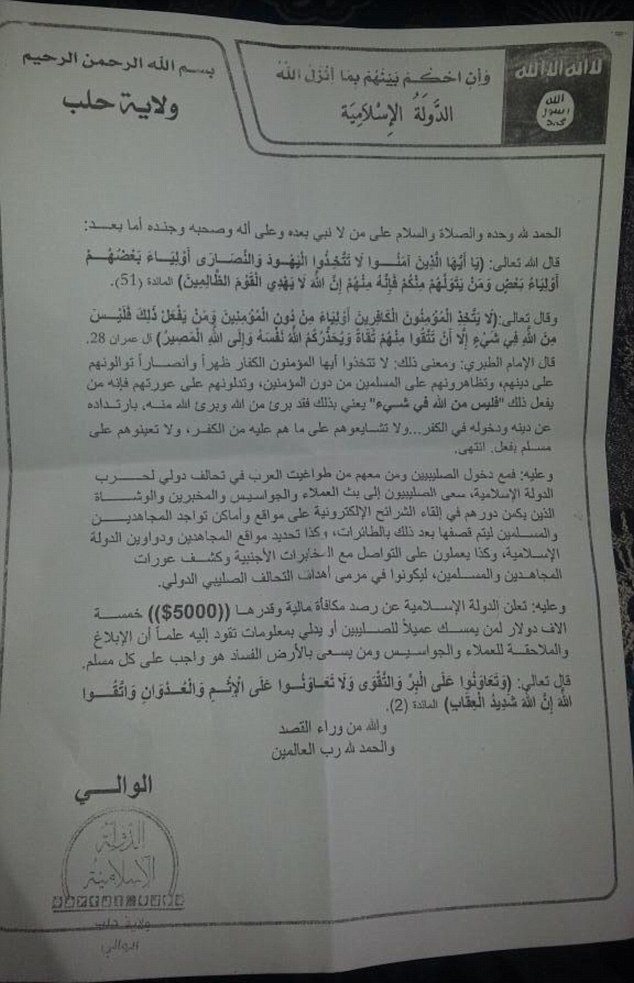 بسم الله الرحمن الرحيم
ولاية حلب
وَأَنِ احْكُمْ بَيْنَهُمْ بِمَا أَنْزَلَ اللهُ
الدَّوْلَةُ الإِسْلَامِيَّة
لا إله إلا الله
الله
رسول
محمد
الحمد لله وحده والصلاة والسلام على من لا نبي بعده وعلى آله وصحبه وجنده أما بعد:
قال الله تعالى: (يَا أَيُّهَا الَّذِينَ آمَنُوا لَا تَتَّخِذُوا الْيَهُودَ وَالنَّصَارَى أَوْلِيَاءَ بَعْضُهُمْ
أَوْلِيَاءُ بَعْضٍ وَمَنْ يَتَوَلَّهُمْ مِنْكُمْ فَإِنَّهُ مِنْهُمْ إِنَّ اللهَ لَا يَهْدِي الْقَوْمَ الظَّالِمِينَ) المائدة (51).
وقال تعالى:(لَا يَتَّخِذِ الْمُؤْمِنُونَ الْكَافِرِينَ أَوْلِيَاءَ مِنْ دُونِ الْمُؤْمِنِينَ وَمَنْ يَفْعَلْ ذَلِكَ فَلَيْسَ
مِنَ اللهِ فِي شَيْءٍ إِلَّا أَنْ تَتَّقُوا مِنْهُمْ تُقَاةً وَيُحَذِّرُكُمُ اللهُ نَفْسَهُ وَإِلَى اللهِ الْمَصِيرُ) آل عمران 28.
قال الإمام الطبري: ومعنى ذلك: لا تتخذوا أيها المؤمنون الكفار ظهراً وأنصاراً توالونهم
على دينهم، وتظاهرونهم على المسلمين من دون المؤمنين، وتدلونهم على عورتهم فإنه من
يفعل ذلك "فليس من الله في شيء" يعني بذلك فقد برئ من الله وبرئ الله منه، بارتداده
عن دينه ودخوله في الكفر...ولا تشايعوهم على ما هم عليه من الكفر، ولا تعينوهم على
مسلم بفعل. انتهى.
وعليه: فمع دخول الصليبيين ومن معهم من طواغيت العرب في تحالف دولي لحرب
الدولة الإسلامية، سعى الصليبيون إلى بث العملاء والجواسيس والمخبرين والوشاة
الذين يكمن دورهم في إلقاء الشرائح الإلكترونية على مواقع وأماكن تواجد المجاهدين
والمسلمين ليتم قصفها بعد ذلك بالطائرات، وكذا تحديد مواقع المجاهدين ودواوين الدولة
الإسلامية، وكذا يعملون على التواصل مع المخابرات الأجنبية وكشف عورات
المجاهدين والمسلمين، ليكونوا في مرمى أهداف التحالف الصليبي الدولي.
وعليه: تعلن الدولة الإسلامية عن رصد مكافأة مالية وقدرها ((5000$)) خمسة
الاف دولار لمن يمسك عميلاً للصليبيين أو يدلي بمعلومات تقود إليه علماً أن الإبلاغ
والملاحقة للعملاء والجواسيس ومن يسعى بالأرض الفساد هو واجب على كل مسلم.
قال تعالى: (وَتَعَاوَنُوا عَلَى الْبِرِّ وَالتَّقْوَى وَلَا تَعَاوَنُوا عَلَى الْإِثْمِ وَالْعُدْوَانِ وَاتَّقُوا
اللهَ إِنَّ اللهَ شَدِيدُ الْعِقَابِ) المائدة (2).
والله من وراء القصد
والحمد لله رب العالمين
الوالي
الدولة
الإسلامية
ولاية حلب
الوالي